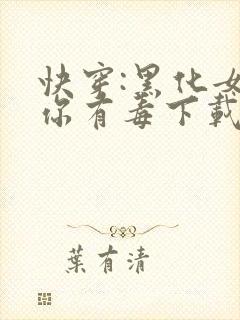 快穿:黑化女
你有毒下載
葉有清